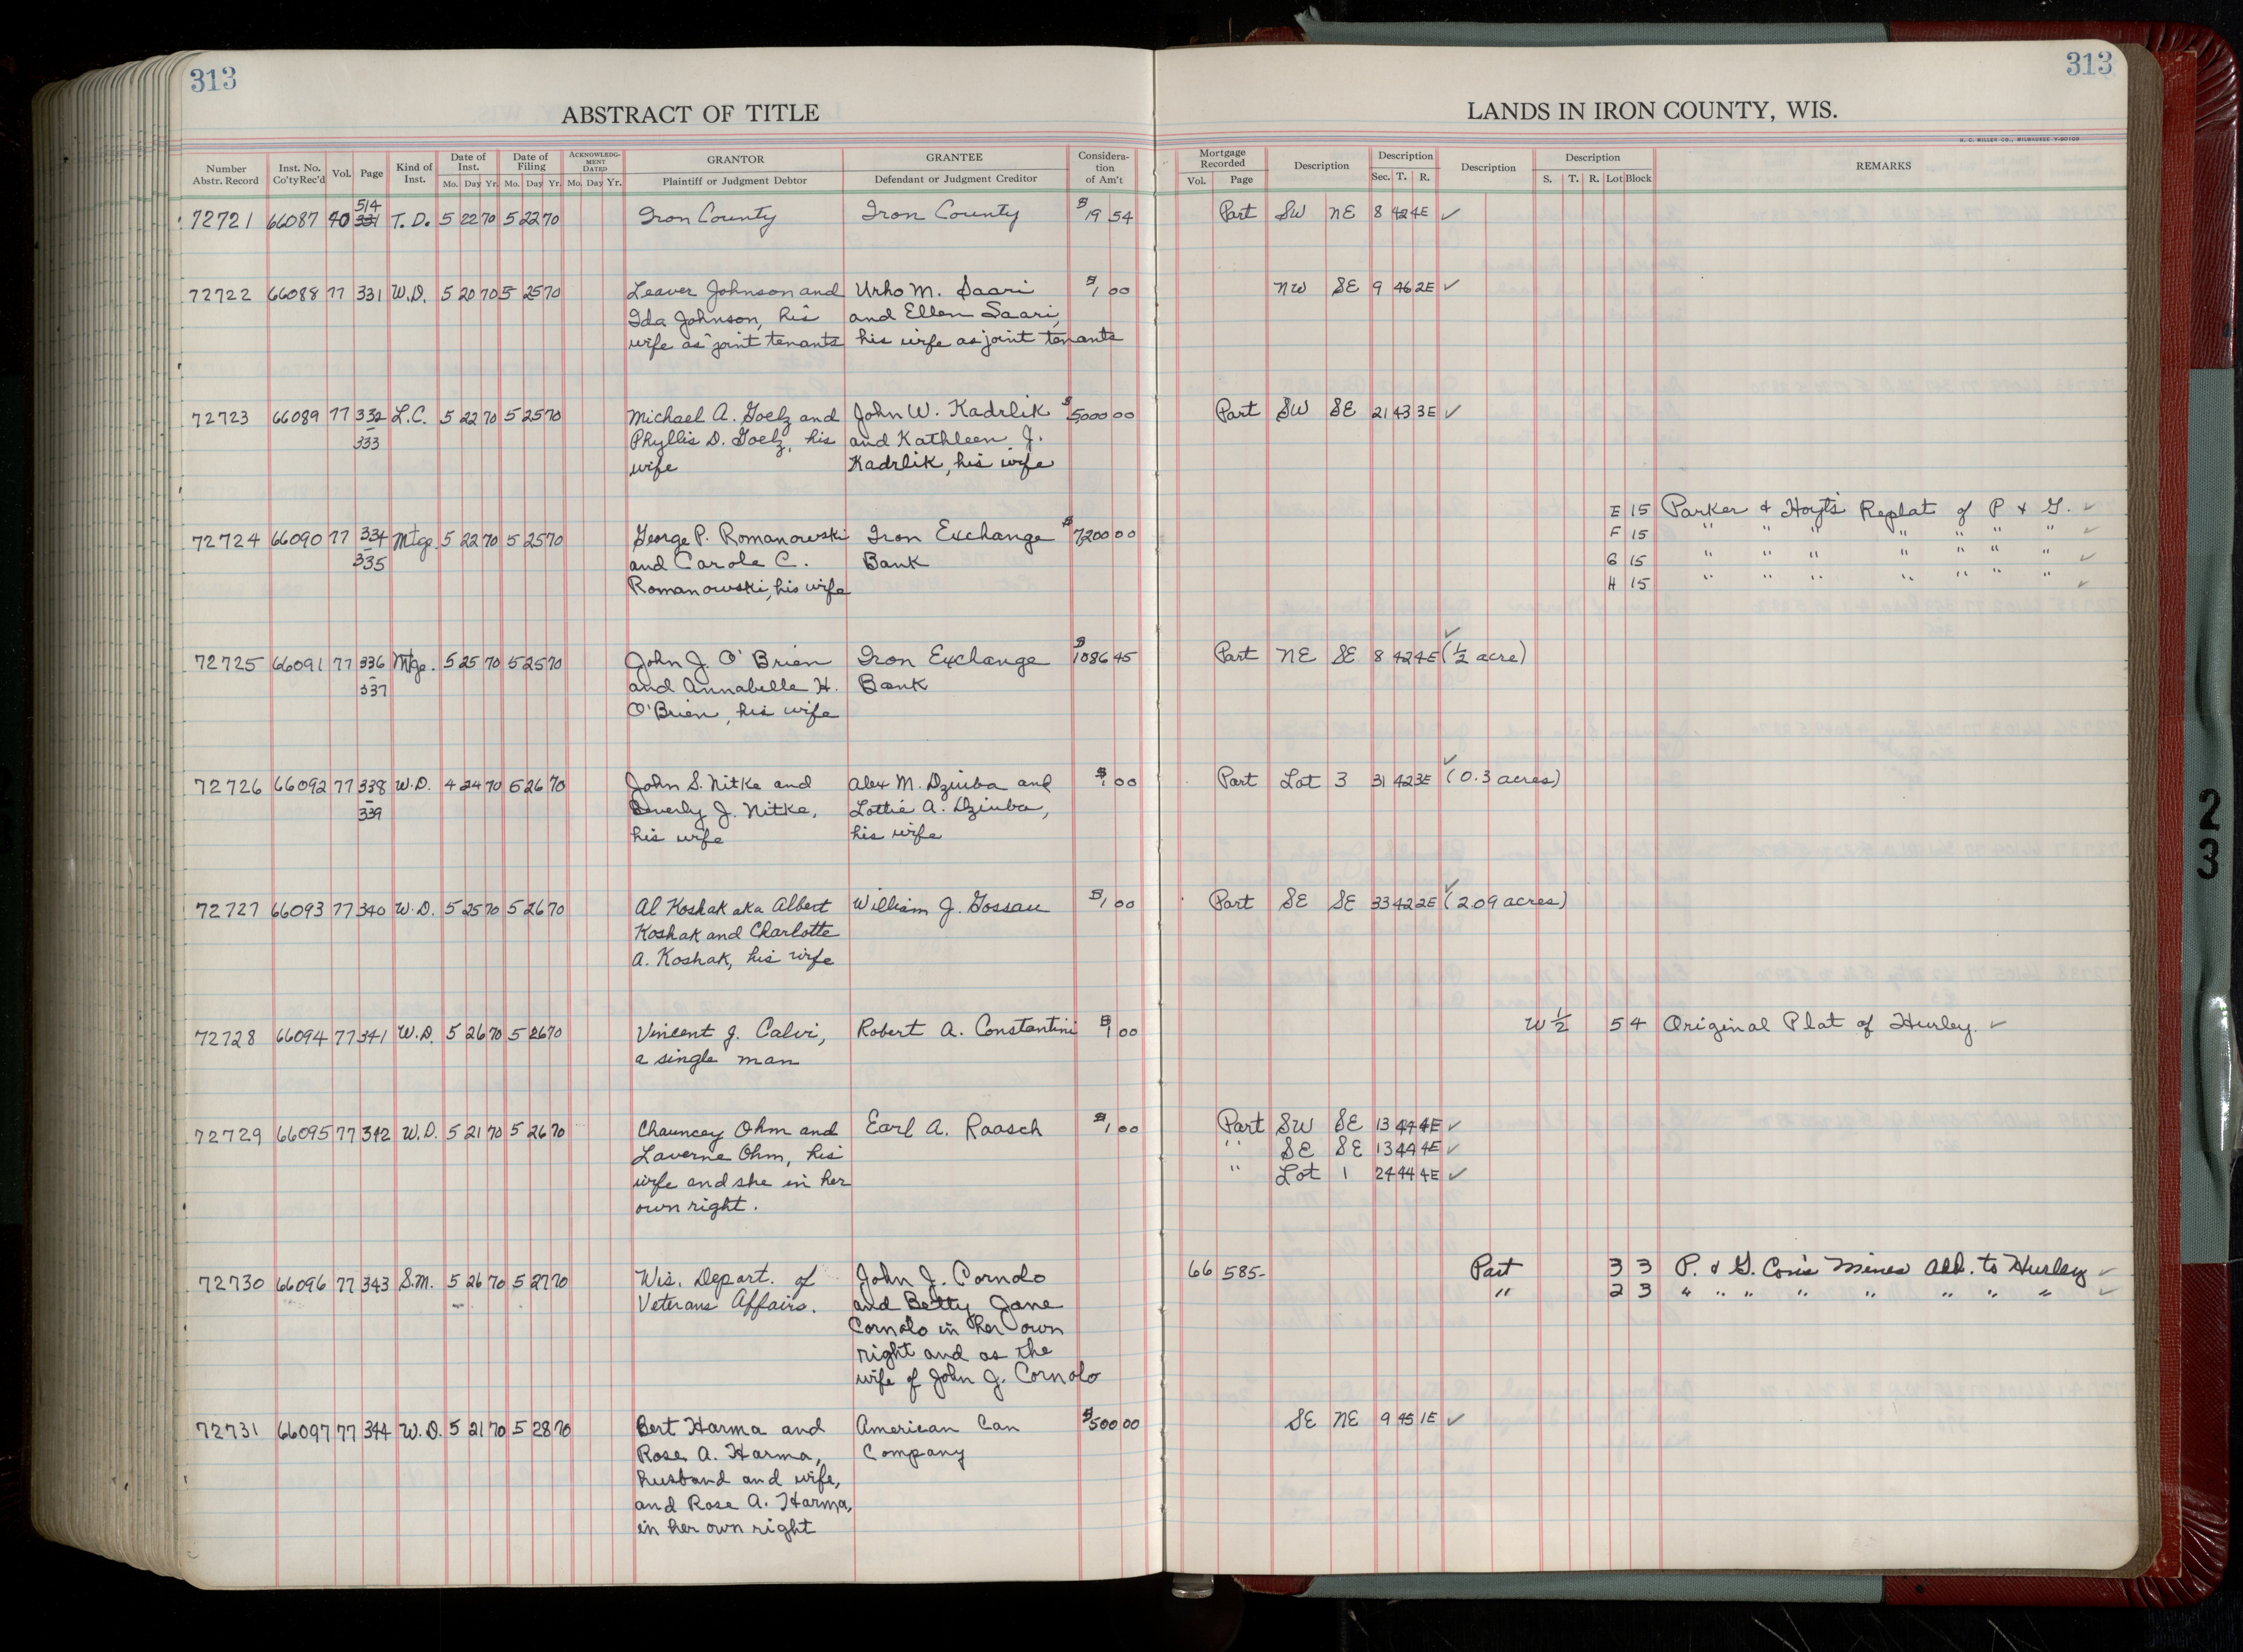 313
313
ABSTRACT OF TITLE
LANDS IN IRON COUNTY, WIS.
H. C. MILLER CO., MILWAUKEE
Number Abstr. Record | Inst. No. Co'ty Rec'd | Vol. | Page | Kind of Inst. | Date of Inst. Mo. Day Yr. | Date of Filing Mo. Day Yr. | ACKNOWLEDGMENT DATED Mo. Day Yr. | GRANTOR Plaintiff or Judgment Debtor | GRANTEE Defendant or Judgment Creditor | Consideration of Am't
Mortgage Recorded Vol. Page | Description | Description Sec. T. R. | Description | Description S. T. R. Lot Block | REMARKS
514
72721 66087 40 331 T. D. 5 22 70 5 22 70 Iron County Iron County $19 54 Part SW NE 8 42 4E ✓
72722 66088 77 331 W.D. 5 20 70 5 25 70 Leaver Johnson and Urho M. Saari $1 00 NW SE 9 46 2E ✓
Ida Johnson, his and Ellen Saari,
wife as joint tenants his wife as joint tenants
72723 66089 77 332 L.C. 5 22 70 5 25 70 Michael A. Goelz and John W. Kadrlik $5,000 00 Part SW SE 21 43 3E ✓
333 Phyllis D. Goelz, his and Kathleen J.
wife Kadrlik, his wife
E 15 Parker & Hoyt's Replat of P & G. ✓
72724 66090 77 334 Mtge. 5 22 70 5 25 70 George P. Romanowski Iron Exchange $7200 00 F 15 " " " " " " " ✓
335 and Carole C. Bank G 15 " " " " " " " ✓
Romanowski, his wife H 15 " " " " " " " ✓
72725 66091 77 336 Mtge. 5 25 70 5 25 70 John J. O'Brien Iron Exchange $1086 45 Part NE SE 8 42 4E (½ acre) ✓
337 and Annabelle H. Bank
O'Brien, his wife
72726 66092 77 338 W.D. 4 24 70 5 26 70 John S. Nitke and Alex M. Dziuba and $1 00 Part Lot 3 31 42 3E (0.3 acres) ✓
339 Beverly J. Nitke, Lottie A. Dziuba,
his wife his wife
72727 66093 77 340 W.D. 5 25 70 5 26 70 Al Koshak aka Albert William J. Gossau $1 00 Part SE SE 33 42 2E (2.09 acres) ✓
Koshak and Charlotte
A. Koshak, his wife
72728 66094 77 341 W.D. 5 26 70 5 26 70 Vincent J. Calvi, Robert A. Constantini $1 00 W ½ 5 4 Original Plat of Hurley. ✓
a single man
72729 66095 77 342 W.D. 5 21 70 5 26 70 Chauncey Ohm and Earl A. Raasch $1 00 Part SW SE 13 44 4E ✓
Laverne Ohm, his " SE SE 13 44 4E ✓
wife and she in her " Lot 1 24 44 4E ✓
own right.
72730 66096 77 343 S.M. 5 26 70 5 27 70 Wis. Depart. of John J. Cornolo 66 585- Part 3 3 P. & G. Con's Mines Add. to Hurley ✓
Veterans Affairs. and Betty Jane " 2 3 " " " " " " " " ✓
Cornolo in her own
right and as the
wife of John J. Cornolo
72731 66097 77 344 W.D. 5 21 70 5 28 70 Bert Harma and American Can $500 00 SE NE 9 45 1E ✓
Rose A. Harma, Company
husband and wife,
and Rose A. Harma,
in her own right
23